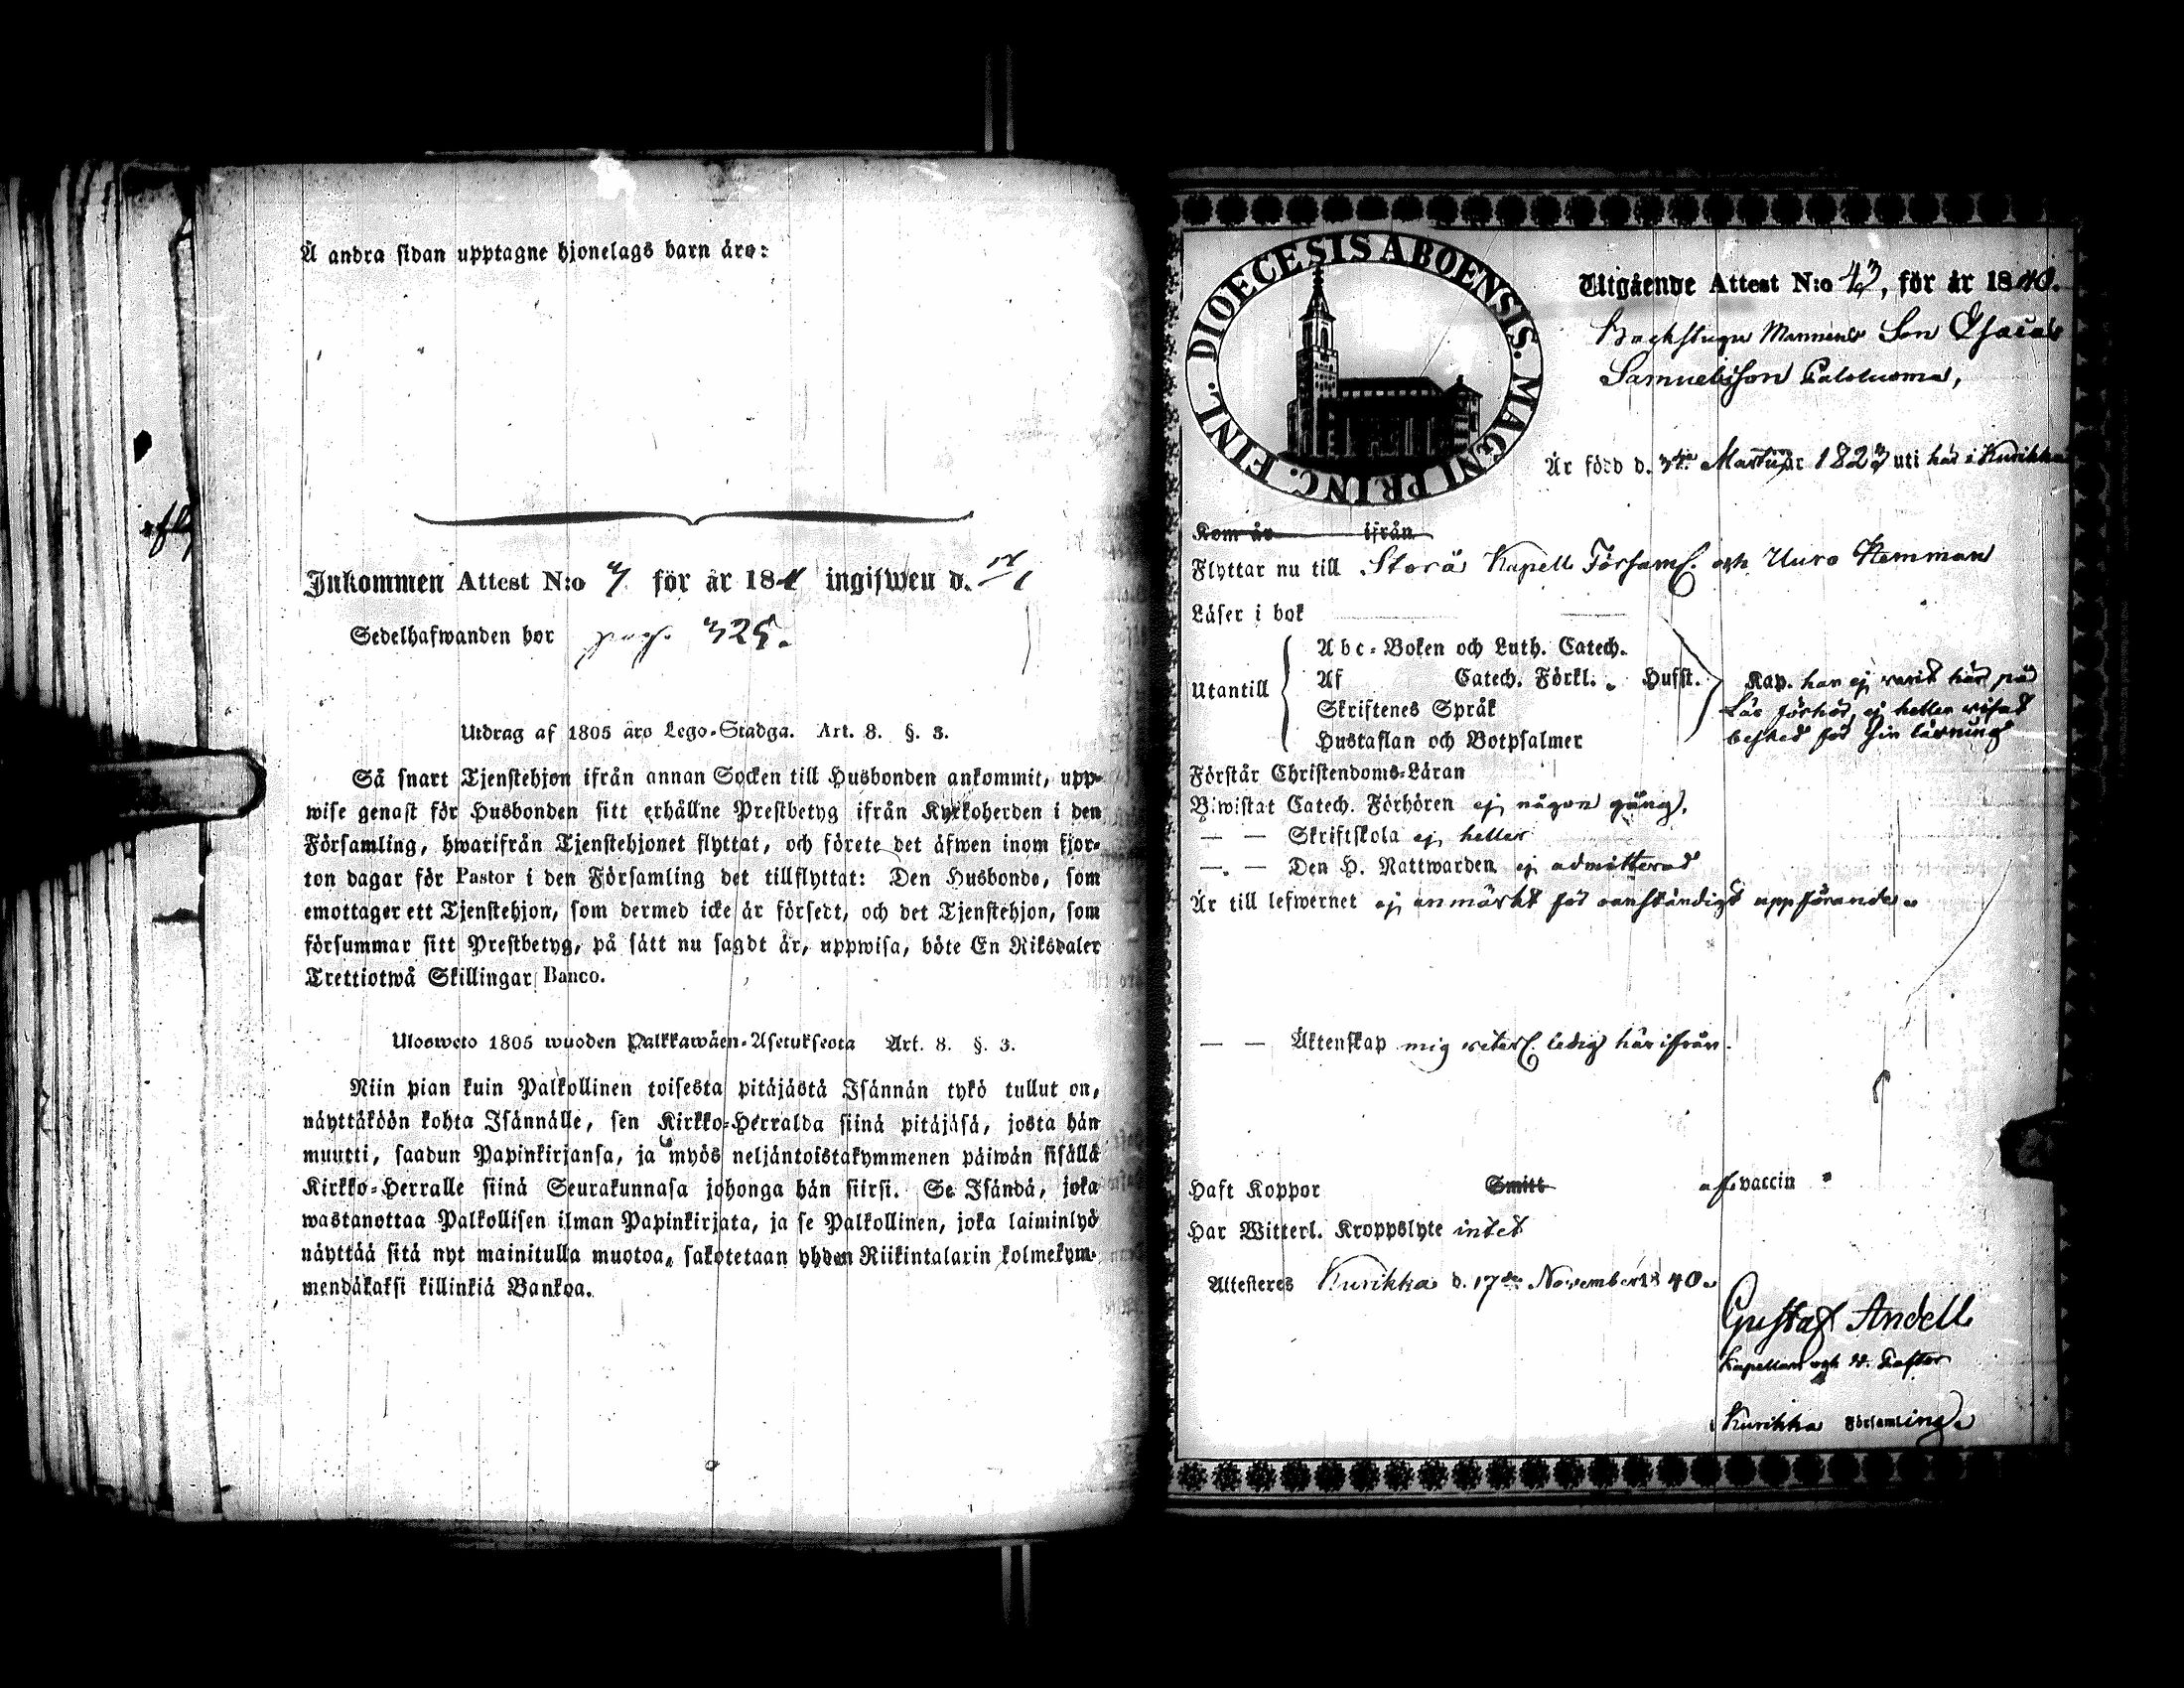 Å andra sidan upptagne hjonelags barn äro:
Inkommen Attest N:o 7 för år 1841 ingifwen d.
Sedelhafwanden bor pag. 325.
Utdrag af 1805 års Lego-Stadga. Art. 8. §. 3.
Så snart Tjenstehjon ifrån annan Socken till Husbonden ankommit, upp-
wise genast för Husbonden sitt erhållne Prestbetyg ifrån Kyrkoherden i den
Församling, hwarifrån Tjenstehjonet flyttat, och förete det äfwen inom fjor-
ton dagar för Pastor i den Församling det tillflyttat: Den Husbonde, som
emottager ett Tjenstehjon, som dermed icke är försedt, och det Tjenstehjon, som
försummar sitt Prestbetyg, på sätt nu sagdt är, uppwisa, böte En Riksdaler
Trettiotwå Skillingar Banco.
Ulosweto 1805 wuoden Palkkawäen-Asetuksesta Art. 8. §. 3.
Niin pian kuin Palkollinen toisesta pitäjästä Isännän tykö tullut on,
näyttäköön kohta Isännälle, sen Kirkko-Herralda siinä pitäjäsä, josta hän
muutti, saadun Papinkirjansa, ja myös neljäntoistakymmenen päiwän sisällä
Kirkko-Herralle siinä Seurakunnasa johonga hän siirsi. Se Isändä, joka
wastanottaa Palkollisen ilman Papinkirjata, ja se Palkollinen, joka laiminlyö
näyttää sitä nyt mainitulla muotoa, sakotetaan yhden Riikintalarin kolmekym-
mendäkaksi killinkiä Bankoa.
DIOECESIS ABOENSIS. MAGNI PRINC. FINL.
Utgående Attest N:o 43, för år 1840.
Backstugu Mannens Son Esaias
Samuelsson Paloluoma,
Är född d. 3die Martii år 1823 uti här i Kurikka
Kom år ifrån
Flyttar nu till Storå Kapell Församl. och Uuro Hemman
Läser i bok
Utantill
Abc-Boken och Luth. Catech.
Af Catech. Förkl. Husst.
Skriftenes Språk
Hustaflan och Botpsalmer
Kap. han ej varit här på
Läs förhör, ej heller visat
besked för sin lärning
Förstår Christendoms-Läran
Biwistat Catech. Förhören ej någon gång.
— — Skriftskola ej heller
— — Den H. Nattwarden ej admitterad
Är till lefwernet ej anmärkt för oanständigt uppförande.
— — Äktenskap mig veterl. ledig härifrån.
Haft Koppor Smitt af vaccin
Har Witterl. Kroppslyte intet
Attesteres Kurikka d. 17de November 1840.
Gustaf Andell
Kapellan och v. Pastor
i Kurikka Församling.